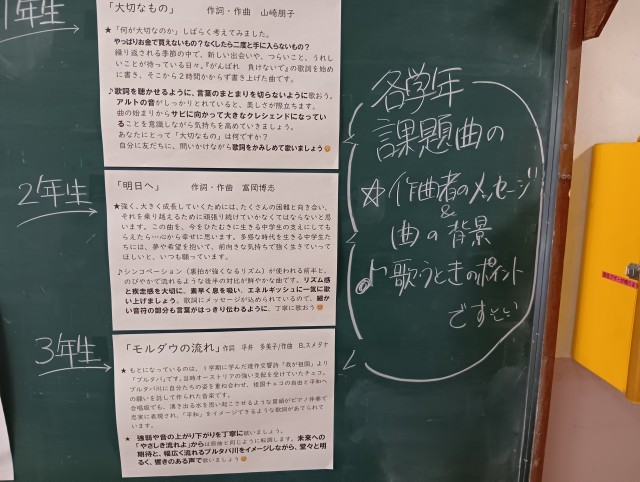 1年生
「大切なもの」 作詞・作曲 山崎朋子
★「何が大切なのか」しばらく考えてみました。
やっぱりお金で買えないもの?なくしたら二度と手に入らないもの?
繰り返される季節の中で、新しい出会いや、つらいこと、うれ
しいことが待っている日々。『がんばれ 負けないで』の歌詞を始め
に書き、そこから2時間かからず書き上げた曲です。
♪歌詞を聴かせるように、言葉のまとまりを切らないように歌おう。
アルトの音がしっかりとれていると、美しさが際立ちます。
曲の始まりからサビに向かって大きなクレシェンドになってい
ることを意識しながら気持ちを高めていきましょう。
あなたにとって「大切なもの」は何ですか?
自分に友だちに、問いかけながら歌詞をかみしめて歌いましょう
2年生
「明日へ」 作詞・作曲 富岡博志
★強く、大きく成長していくためには、たくさんの困難と向き合い、
それを乗り越えるために頑張り続けていかなくてはならないと思
います。この曲を、今をひたむきに生きる中学生の支えにしても
らえたら…心から幸せに思います。多感な時代を生きる中学生た
ちには、夢や希望を抱いて、前向きな気持ちで強く生きていって
ほしいと、いつも願っています。
♪シンコペーション(裏拍が強くなるリズム)が使われる前半と、
のびやかで流れるような後半の対比が鮮やかな曲です。リズム感
と疾走感を大切に、素早く息を吸い、エネルギッシュに一気に歌い
上げましょう。歌詞にメッセージが込められているので、細か
い音符の部分も言葉がはっきり伝わるように、丁寧に歌おう
3年生
「モルダウの流れ」作詞 平井 多美子/作曲 B.スメタナ
★ もとになっているのは、1学期に学んだ連作交響詩「我が祖国」より
「ブルタバ」です。当時オーストリアの強い支配を受けていたチェコ。
ブルタバ川に自分たちの姿を重ね合わせ、祖国チェコの自由と平和へ
の願いを託して作られた音楽です。
合唱版でも、湧き出る水を思い起こさせるような冒頭がピアノ伴奏で
忠実に表現され、「平和」をイメージできるような歌詞があてられて
います。
★ 強弱や音の上がり下がりを丁寧に歌いましょう。
「やさしき流れよ」からは原曲と同じように転調します。未来への
期待と、幅広く流れるブルタバ川をイメージしながら、堂々と明
るく、響きのある声で歌いましょう
各学年
課題曲の
☆作曲者のメッセージ
&
曲の背景
♪歌うときのポイント
です